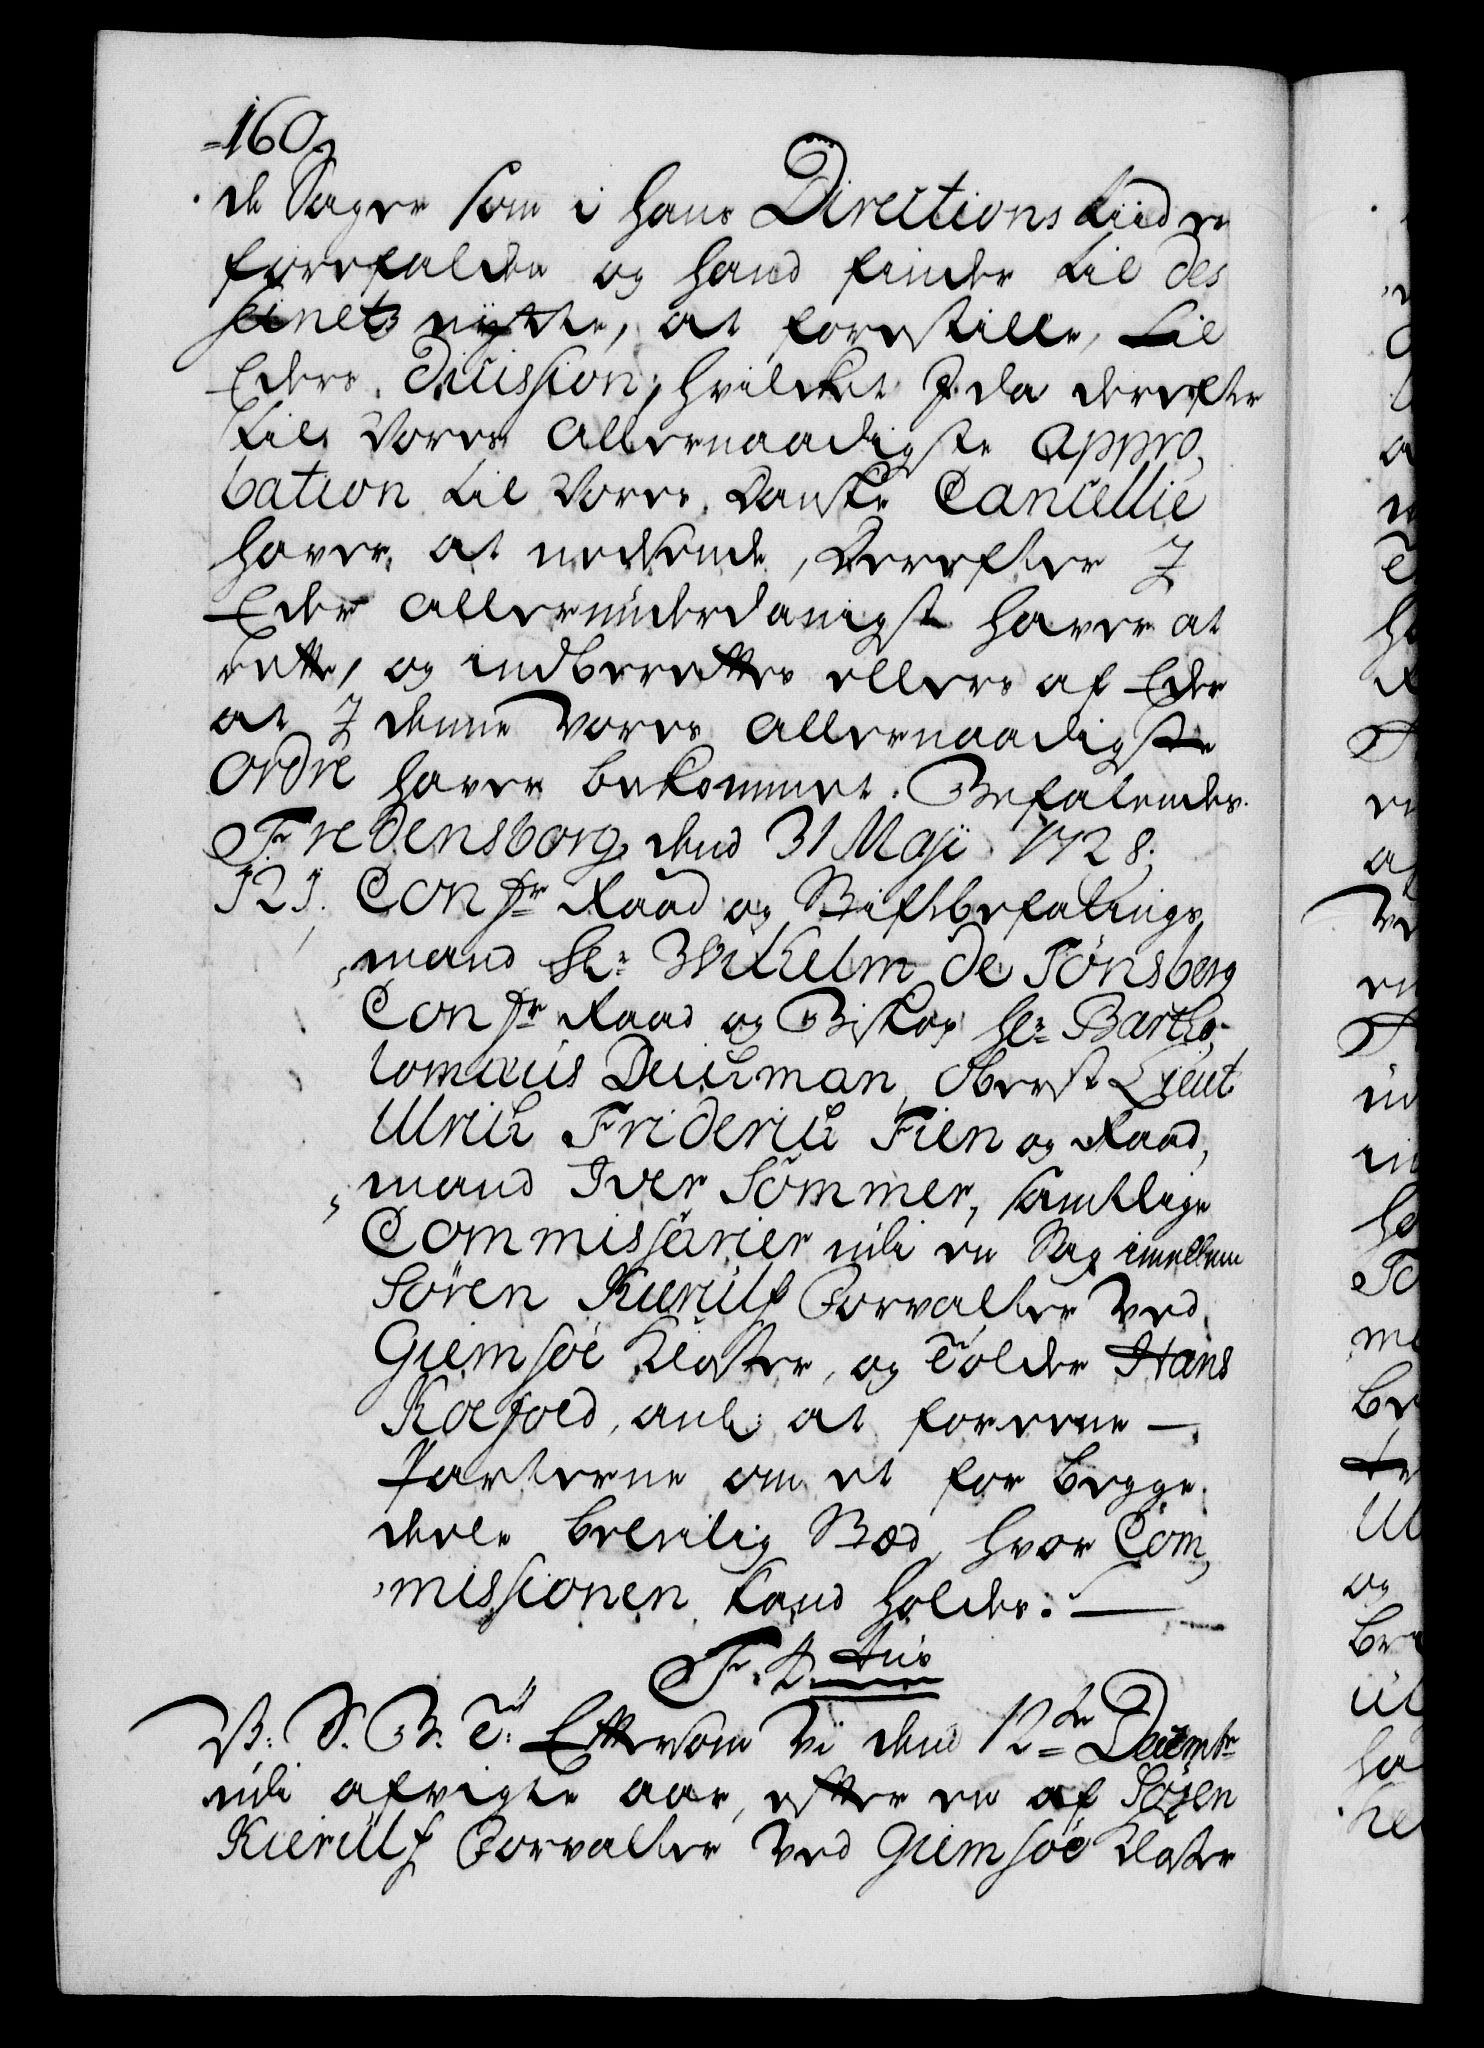 160
de Sager som i hans Directions tiid er
forefalden og hand finder til des
seinets nytte, at forestille, til
Eders Dicision, hvilcket I da derefter
til Vores allernaadigste appro,
bation til Vores Danske Cancellie
haver at nedsende, Derefter I
Eder allerunderdanigst haver at
rette, og indberettes ellers af Eder
at I denne Vores allernaadigste
ordre haver bekommet. Befalendes.
Fredensborg dend 31 Maji 1728.
121. Confr Raad og Stiftsbefalings,
mand Hr: Wilhelm de Tönsberg
Confr Raad og Biskop Hr: Bartho,
lomæus Deichman, Oberst Lieut
Ulrich Friderich Fien og Raad,
mand Iver Sommer, samtlige
Commissarier udi en Sag imellem
Sören Kierulf Forvalter Ved
Giemsöe Kloster, og Tolder Hans
Koefoed, anl: at foreene
Parterne om et for begge
deele beleilig Stæd, hvor Com,
missionen kand holdes.
F. 4. tus
V. S. G. T. Eftersom Vi dend 12te Decembr
udi afvigte aar, efter en af Sören
Kierulf Forvalter Ved Giemsöe Kloster